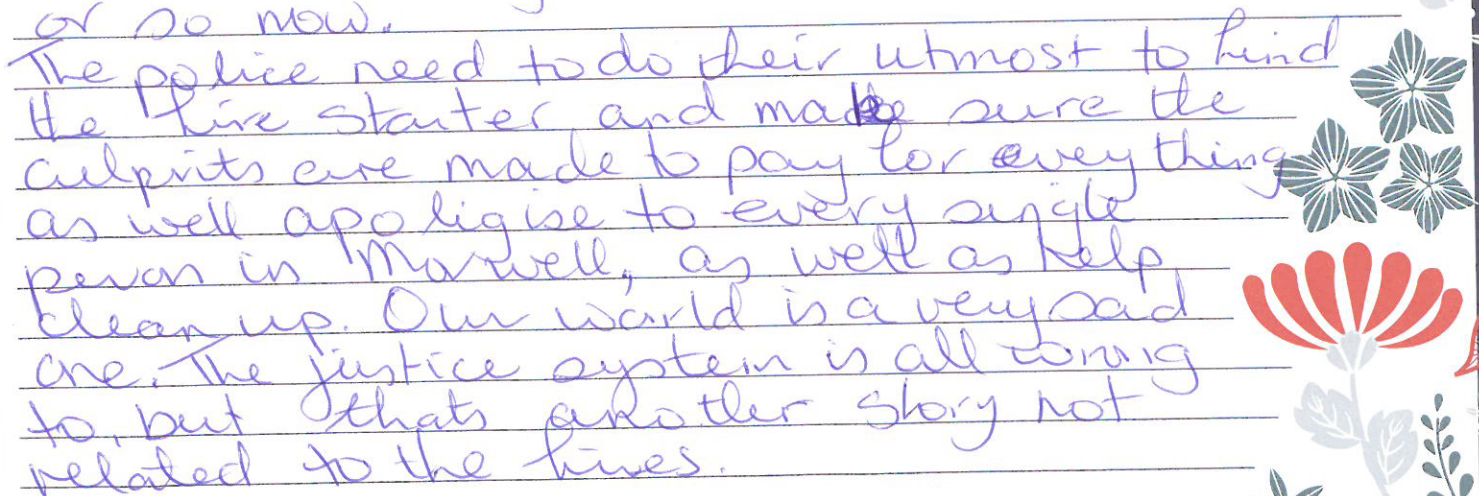 or so now.
The police need to do their utmost to find
the fire starter and make sure the
culprits are made to pay for evey thing
as well apoligise to every single
person in Morwell, as well as help
clean up. Our world is a very sad
one. The justice system is all wrong
to, but thats another story not
related to the fires.